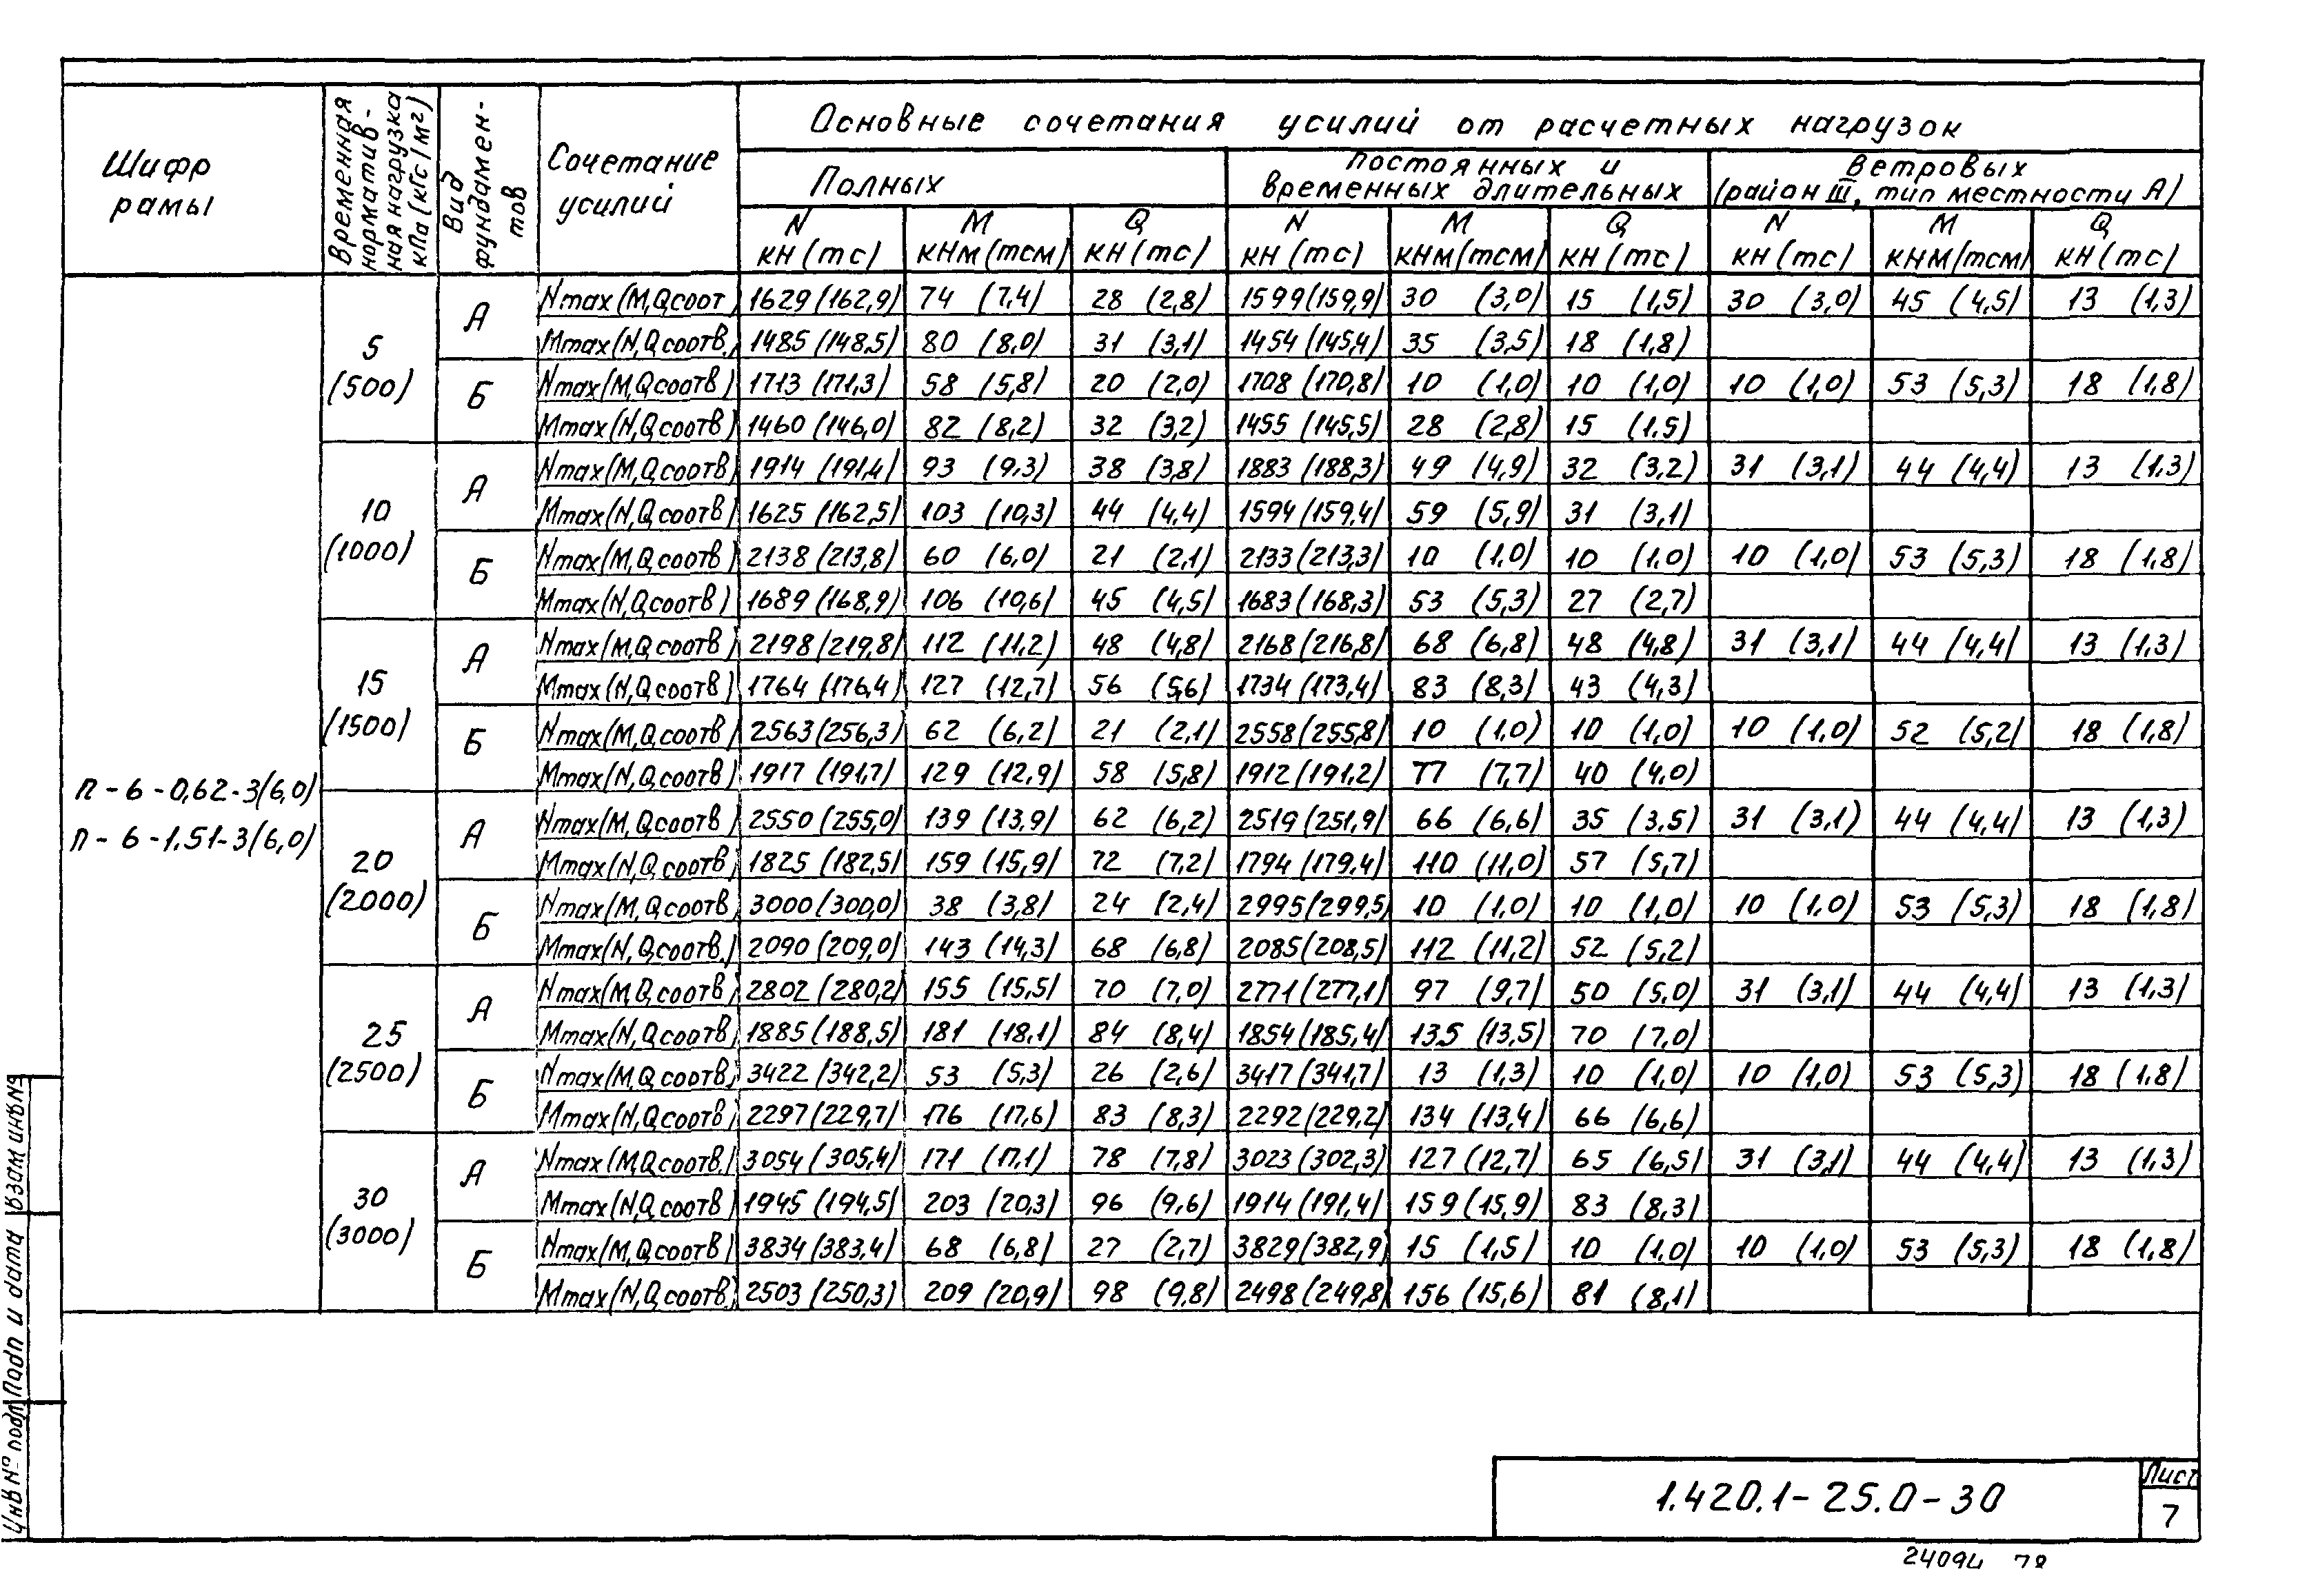 Шифр рамы
Временная норматив-ная нагрузка кПа (кгс/м²)
Вид фундамен-тов
Сочетание усилий
Основные сочетания усилий от расчетных нагрузок
Полных
Постоянных и временных длительных
Ветровых (район III, тип местности А)
N кН (тс) M кНм (тсм) Q кН (тс) N кН (тс) M кНм (тсм) Q кН (тс) N кН (тс) M кНм (тсм) Q кН (тс)
П-6-0,62-3(6,0)
П-6-1.51-3(6,0)
5 (500)
А
Nmax (M,Q соот) 1629 (162,9) 74 (7,4) 28 (2,8) 1599 (159,9) 30 (3,0) 15 (1,5) 30 (3,0) 45 (4,5) 13 (1,3)
Mmax (N,Q соотв.) 1485 (148,5) 80 (8,0) 31 (3,1) 1454 (145,4) 35 (3,5) 18 (1,8)
Б
Nmax (M,Q соотв) 1713 (171,3) 58 (5,8) 20 (2,0) 1708 (170,8) 10 (1,0) 10 (1,0) 10 (1,0) 53 (5,3) 18 (1,8)
Mmax (N,Q соотв) 1460 (146,0) 82 (8,2) 32 (3,2) 1455 (145,5) 28 (2,8) 15 (1.5)
10 (1000)
А
Nmax (M,Q соотв) 1914 (191,4) 93 (9,3) 38 (3,8) 1883 (188,3) 49 (4,9) 32 (3,2) 31 (3,1) 44 (4,4) 13 (1,3)
Mmax (N,Q соотв) 1625 (162,5) 103 (10,3) 44 (4,4) 1594 (159,4) 59 (5,9) 31 (3,1)
Б
Nmax (M,Q соотв) 2138 (213,8) 60 (6,0) 21 (2,1) 2133 (213,3) 10 (1,0) 10 (1,0) 10 (1,0) 53 (5,3) 18 (1,8)
Mmax (N,Q соотв) 1689 (168,9) 106 (10,6) 45 (4,5) 1683 (168,3) 53 (5,3) 27 (2,7)
15 (1500)
А
Nmax (M,Q соотв) 2198 (219,8) 112 (11,2) 48 (4,8) 2168 (216,8) 68 (6,8) 48 (4,8) 31 (3,1) 44 (4,4) 13 (1,3)
Mmax (N,Q соотв) 1764 (176,4) 127 (12,7) 56 (5,6) 1734 (173,4) 83 (8,3) 43 (4,3)
Б
Nmax (M,Q соотв) 2563 (256,3) 62 (6,2) 21 (2,1) 2558 (255,8) 10 (1,0) 10 (1,0) 10 (1,0) 52 (5,2) 18 (1,8)
Mmax (N,Q соотв) 1917 (191,7) 129 (12,9) 58 (5,8) 1912 (191,2) 77 (7,7) 40 (4,0)
20 (2000)
А
Nmax (M,Q соотв) 2550 (255,0) 139 (13,9) 62 (6,2) 2519 (251,9) 66 (6,6) 35 (3,5) 31 (3,1) 44 (4,4) 13 (1,3)
Mmax (N,Q соотв) 1825 (182,5) 159 (15,9) 72 (7,2) 1794 (179,4) 110 (11,0) 57 (5,7)
Б
Nmax (M,Q соотв) 3000 (300,0) 38 (3,8) 24 (2,4) 2995 (299,5) 10 (1,0) 10 (1,0) 10 (1,0) 53 (5,3) 18 (1,8)
Mmax (N,Q соотв.) 2090 (209,0) 143 (14,3) 68 (6,8) 2085 (208,5) 112 (11,2) 52 (5,2)
25 (2500)
А
Nmax (M,Q соотв) 2802 (280,2) 155 (15,5) 70 (7,0) 2771 (277,1) 97 (9,7) 50 (5,0) 31 (3,1) 44 (4,4) 13 (1,3)
Mmax (N,Q соотв) 1885 (188,5) 181 (18,1) 84 (8,4) 1854 (185,4) 135 (13,5) 70 (7,0)
Б
Nmax (M,Q соотв.) 3422 (342,2) 53 (5,3) 26 (2,6) 3417 (341,7) 13 (1,3) 10 (1,0) 10 (1,0) 53 (5,3) 18 (1,8)
Mmax (N,Q соотв) 2297 (229,7) 176 (17,6) 83 (8,3) 2292 (229,2) 134 (13,4) 66 (6,6)
30 (3000)
А
Nmax (M,Q соотв.) 3054 (305,4) 171 (17,1) 78 (7,8) 3023 (302,3) 127 (12,7) 65 (6,5) 31 (3,1) 44 (4,4) 13 (1,3)
Mmax (N,Q соотв) 1945 (194,5) 203 (20,3) 96 (9,6) 1914 (191,4) 159 (15,9) 83 (8,3)
Б
Nmax (M,Q соотв) 3834 (383,4) 68 (6,8) 27 (2,7) 3829 (382,9) 15 (1,5) 10 (1,0) 10 (1,0) 53 (5,3) 18 (1,8)
Mmax (N,Q соотв.) 2503 (250,3) 209 (20,9) 98 (9,8) 2498 (249,8) 156 (15,6) 81 (8,1)
Инв № подл Подп и дата Взам инв №
1.420.1-25.0-30
Лист
7
24094 78